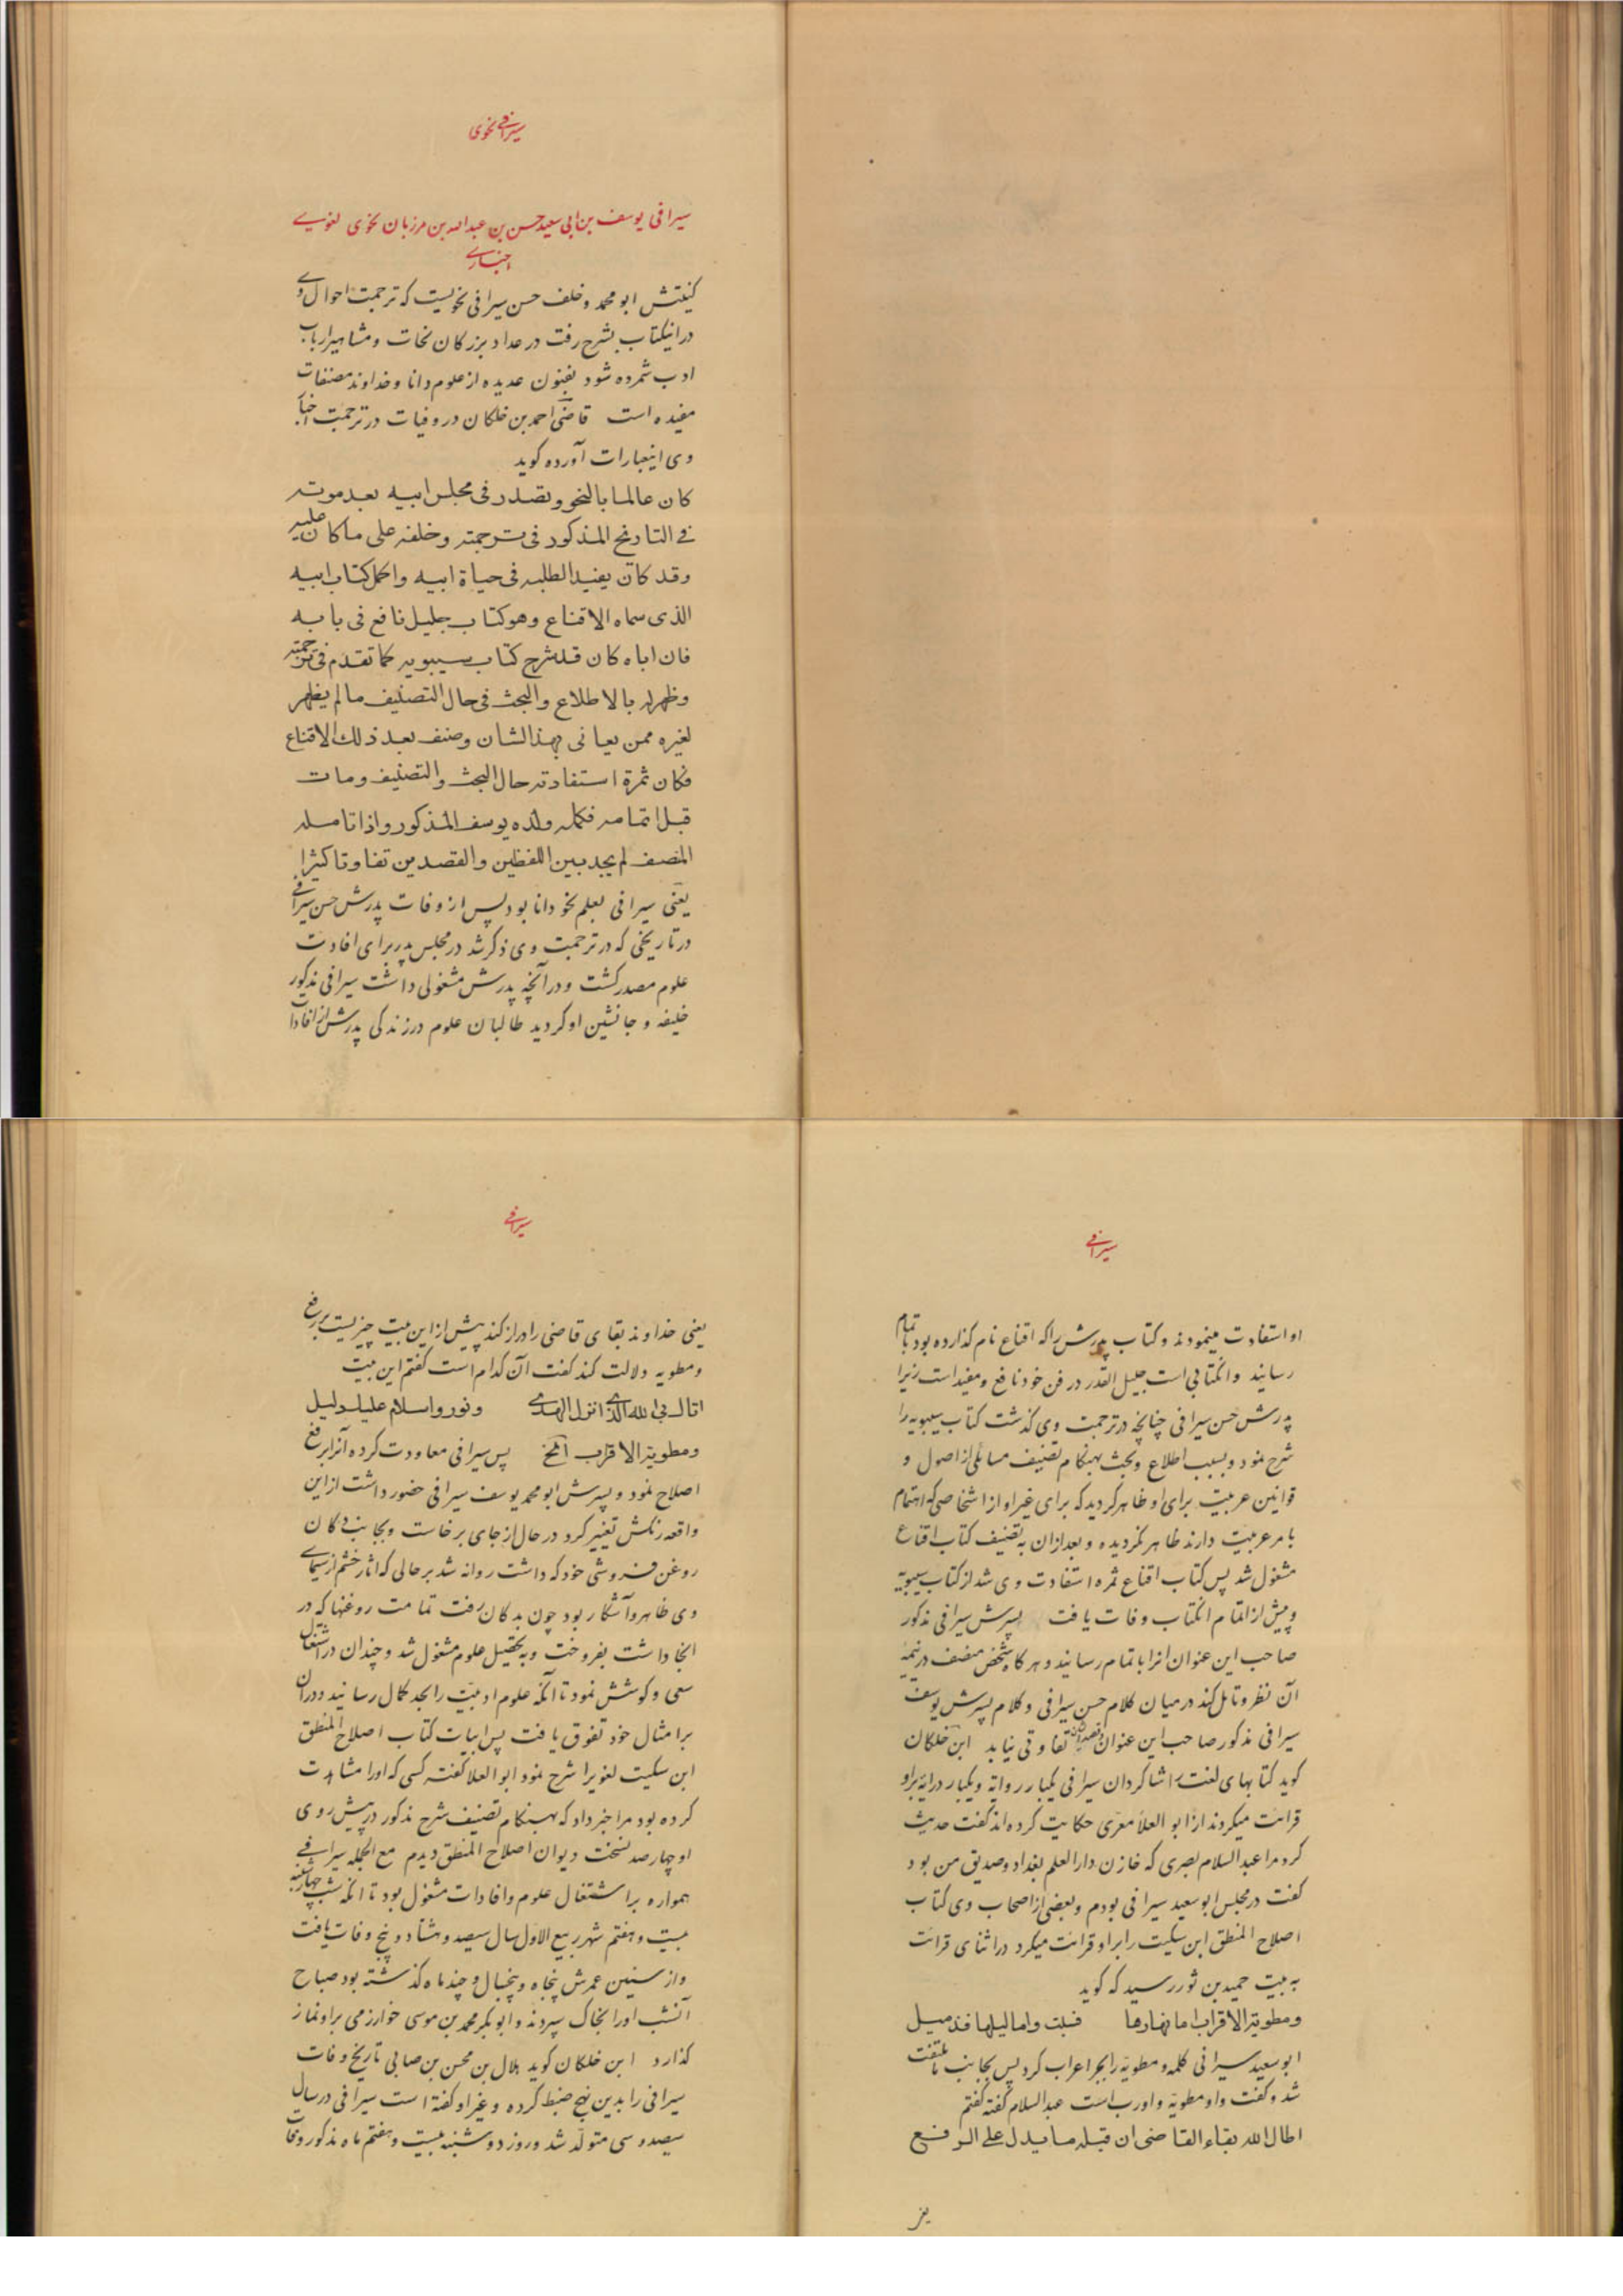 سیرافی نحوی
سیرافی یوسف بن ابی سعید حسن بن عبدالله بن مرزبان نحوی لغوی
اخباری
کنیتش ابو محمد و خلف حسن سیرافی نحویست که ترجمت احوال وی
در اینکتاب بشرح رفت در عداد بزرکان نحات و مشاهیر ارباب
ادب شمرده شود بفنون عدیده از علوم دانا و خداوند مصنفات
مفیده است قاضی احمد بن خلکان در وفیات در ترجمت
وی اینعبارات آورده کوید
کان عالما بالنحو و تصدر فی مجلس ابیه بعد موته
فی التاریخ المذکور فی ترجمته و خلفه علی ما کان علیه
وقد کان یفید الطلبه فی حیاة ابیه واکمل کتاب ابیه
الذی سماه الاقناع وهو کتاب جلیل نافع فی بابه
فان اباه کان قد شرح کتاب سیبویه کما تقدم فی ترجمته
وظهر له بالاطلاع والبحث فی حال التصنیف ما لم یظهر
لغیره ممن یعانی بهذا الشان وصنف بعد ذلك الاقناع
فکان ثمرة استفادته حال البحث والتصنیف ومات
قبل اتمامه فکمله ولده یوسف المذکور واذا تامله
المنصف لم یجد بین اللفظین والقصدین تفاوتا کثیرا
یعنی سیرافی بعلم نحو دانا بود پس از وفات پدرش حسن سیرافی
در تاریخی که در ترجمت وی ذکر شد در مجلس پدر برای افادت
علوم مصدر کشت و در آنچه پدرش مشغولی داشت سیرافی مذکور
خلیفه و جانشین او کردید طالبان علوم در زندکی پدرش از افادات
سیرافی
او استفادت مینمودند و کتاب پدرش را که اقناع نام کذارده بود باتمام
رسانید و انکتابی است جلیل القدر در فن خود نافع و مفید است زیرا
پدرش حسن سیرافی چنانچه در ترجمت وی کذشت کتاب سیبویه را
شرح نمود و بسبب اطلاع و بحث بهنکام تصنیف مسائلی از اصول و
قوانین عربیت برای او ظاهر کردید که برای غیر او از اشخاصی که اهتمام
بامر عربیت دارند ظاهر نکردیده و بعد از ان به تصنیف کتاب اقناع
مشغول شد پس کتاب اقناع ثمره استفادت وی شد از کتاب سیبویه
و پیش از اتمام انکتاب وفات یافت پسرش سیرافی مذکور
صاحب این عنوان انرا باتمام رسانید و هرکاه شخص منصف در تتمیه
آن نظر و تامل کند در میان کلام حسن سیرافی و کلام پسرش یوسف
سیرافی مذکور صاحب این عنوان تفاوتی نیابد ابن خلکان
کوید کتابهای لغت را شاکردان سیرافی یکبار روایة و یکبار درایة بر او
قرائت میکردند از ابو العلاء معری حکایت کرده اند کفت حدیث
کرد مرا عبد السلام بصری که خازن دار العلم بغداد و صدیق من بود
کفت در مجلس ابو سعید سیرافی بودم و بعضی از اصحاب وی کتاب
اصلاح المنطق ابن سکیت را بر او قرائت میکرد در اثنای قرائت
به بیت حمید بن ثور رسید که کوید
ومطویة الاقراب اما نهارها فسبت واما لیلها فذمیل
ابو سعید سیرافی کلمه و مطویة را بجر اعراب کرد پس بجانب ما ملتفت
شد و کفت واو مطویة واو رب است عبد السلام کفته کفتم
اطال الله بقاء القاضی ان قبله ما یدل علی الرفع
سیرافی
یعنی خداوند بقای قاضی را دراز کند پیش از این بیت چیزیست بر رفع
و مطویه دلالت کند کفت آن کدام است کفتم این بیت
اتاك بی الله الذی انزل الهدی ونور واسلام علیك دلیل
ومطویة الاقراب الخ پس سیرافی معاودت کرده آنرا برفع
اصلاح نمود و پسرش ابو محمد یوسف سیرافی حضور داشت از این
واقعه رنکش تغییر کرد در حال از جای برخاست و بجانب دکان
روغن فروشی خود که داشت روانه شد بر حالی که اثار خشم از سیمای
وی ظاهر و آشکار بود چون بدکان رفت تمامت روغنها که در
انجا داشت بفروخت و به تحصیل علوم مشغول شد و چندان در اشتغال
سعی و کوشش نمود تا آنکه علوم ادبیت را بحد کمال رسانید و در ان
بر امثال خود تفوق یافت پس ابیات کتاب اصلاح المنطق
ابن سکیت لغویرا شرح نمود ابو العلا کفته کسی که اورا مشاهدت
کرده بود مرا خبر داد که بهنکام تصنیف شرح مذکور در پیش روی
او چهارصد نسخت دیوان اصلاح المنطق دیدم مع الجمله سیرافی
همواره بر اشتغال علوم و افادات مشغول بود تا انکه شب چهارشنبه
بیست و هفتم شهر ربیع الاول سال سیصد و هشتاد و پنج وفات یافت
و از سنین عمرش پنجاه و پنجسال و چند ماه کذشته بود صباح
آنشب اورا بخاک سپردند و ابو بکر محمد بن موسی خوارزمی بر او نماز
کذارد ابن خلکان کوید هلال بن محسن بن صابی تاریخ وفات
سیرافی را بدین نهج ضبط کرده و غیر او کفته است سیرافی در سال
سیصد و سی متولد شد و روز دوشنبه بیست و هفتم ماه مذکور وفات